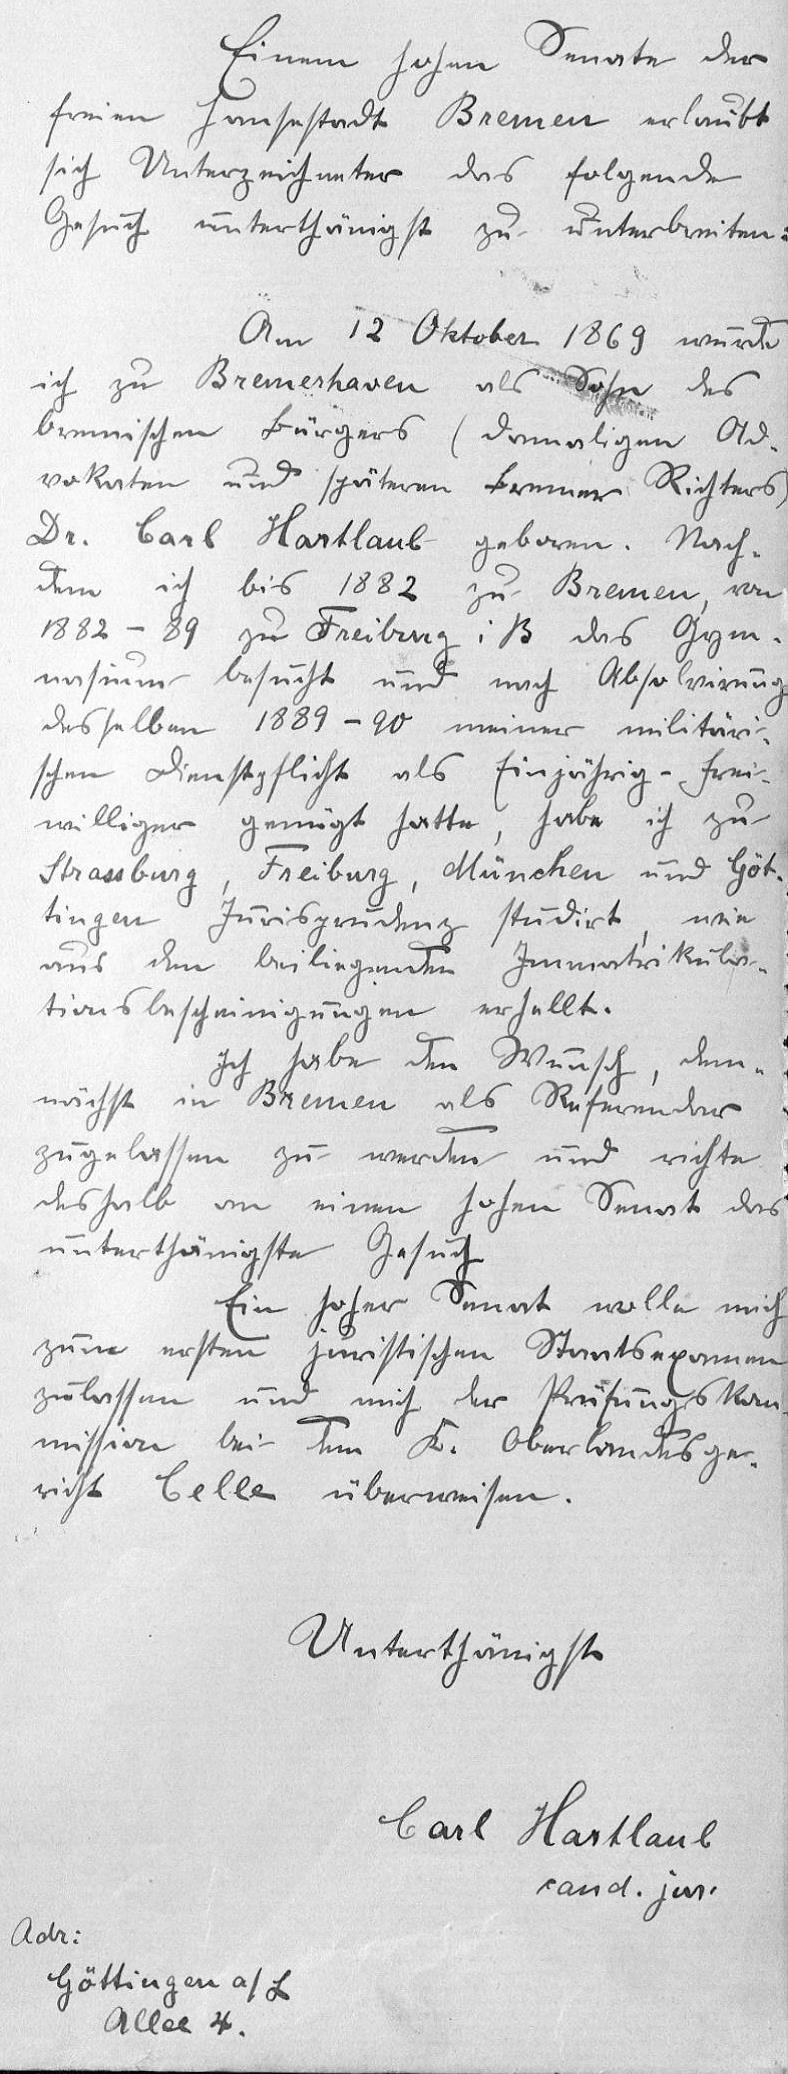 Einem hohen Senate der
freien Hansestadt Bremen erlaubt
sich Unterzeichneter das folgende
Gesuch unterthänigst zu unterbreiten:
Am 12 Oktober 1869 wurde
ich zu Bremerhaven als Sohn des
bremischen Bürgers (damaligen Ad-
vokaten und späteren Bremer Richters)
Dr. Carl Hartlaub geboren. Nach-
dem ich bis 1882 zu Bremen, von
1882-89 zu Freiburg i B das Gym-
nasium besucht und nach Absolvirung
desselben 1889-90 meiner militäri-
schen Dienstpflicht als Einjährig-Frei-
williger genügt hatte, habe ich zu
Strassburg, Freiburg, München und Göt-
tingen Jurisprudenz studirt, wie
aus den beiliegenden Immatrikula-
tionsbescheinigungen erhellt.
Ich habe den Wunsch, dem-
nächst in Bremen als Referendar
zugelassen zu werden und richte
deshalb an einen hohen Senat das
unterthänigste Gesuch
Ein hoher Senat wolle mich
zum ersten juristischen Staatsexamen
zulassen und mich der Prüfungskom-
mission bei dem K. Oberlandesge-
richt Celle überweisen.
Unterthänigst
Carl Hartlaub
cand. jur.
Adr:
Göttingen a/L
Allee 4.